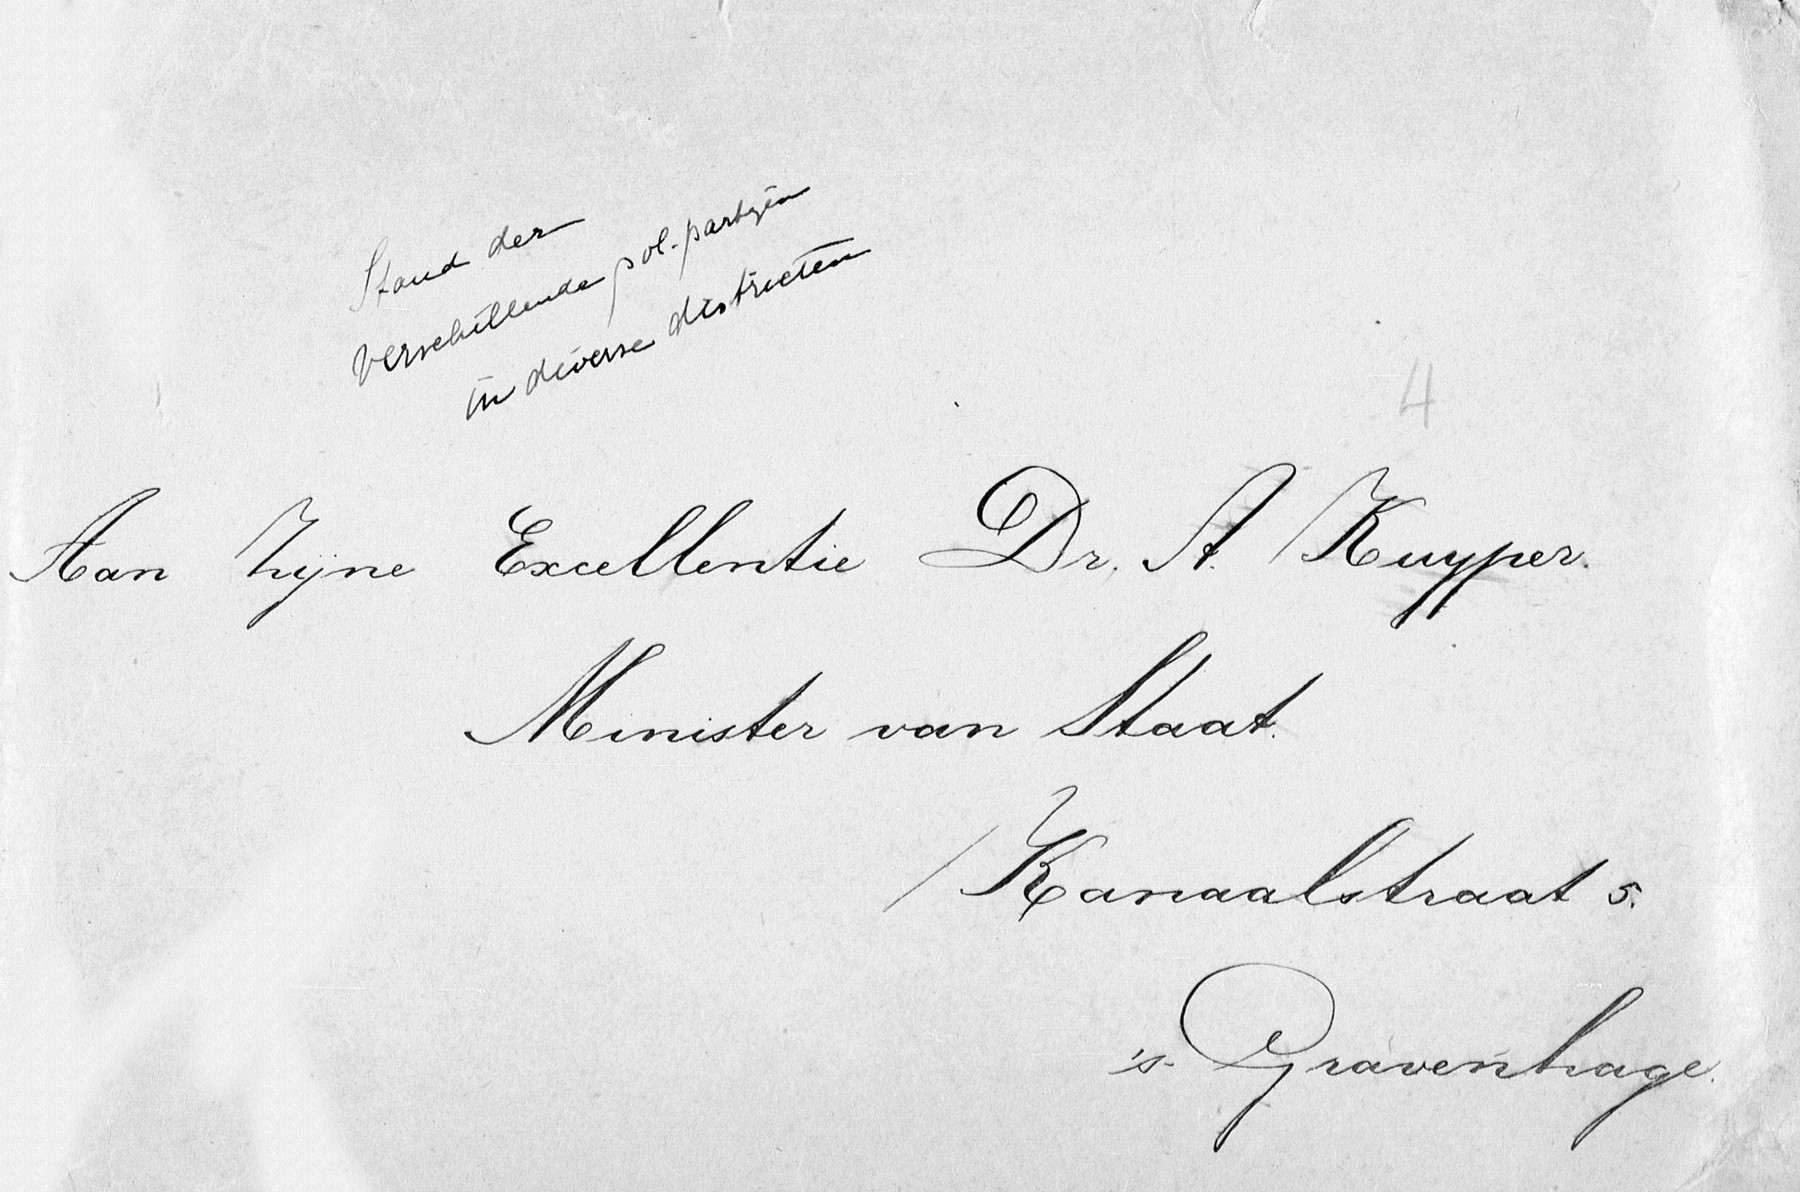 Stand der
verschillende pol. partijen
in diverse districten
4
Aan Zijne Excellentie Dr. A. Kuyper.
Minister van Staat.
Kanaalstraat 5.
's-Gravenhage.